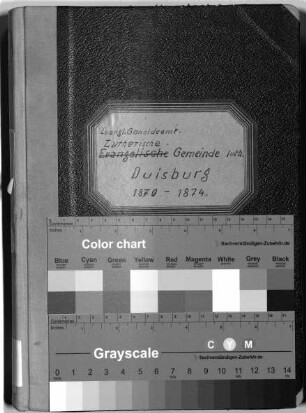 Evangl. Gemeindeamt.
Lutherische.
Evangelische Gemeinde luth.
Duisburg
1870 - 1874.
Color chart
Sachverständigen-Zubehör.de
Blue Cyan Green Yellow Red Magenta White Grey Black
Grayscale
C Y M
Sachverständigen-Zubehör.de
0 1 2 3 4 5 6 7 8 9 10 11 12 13 14